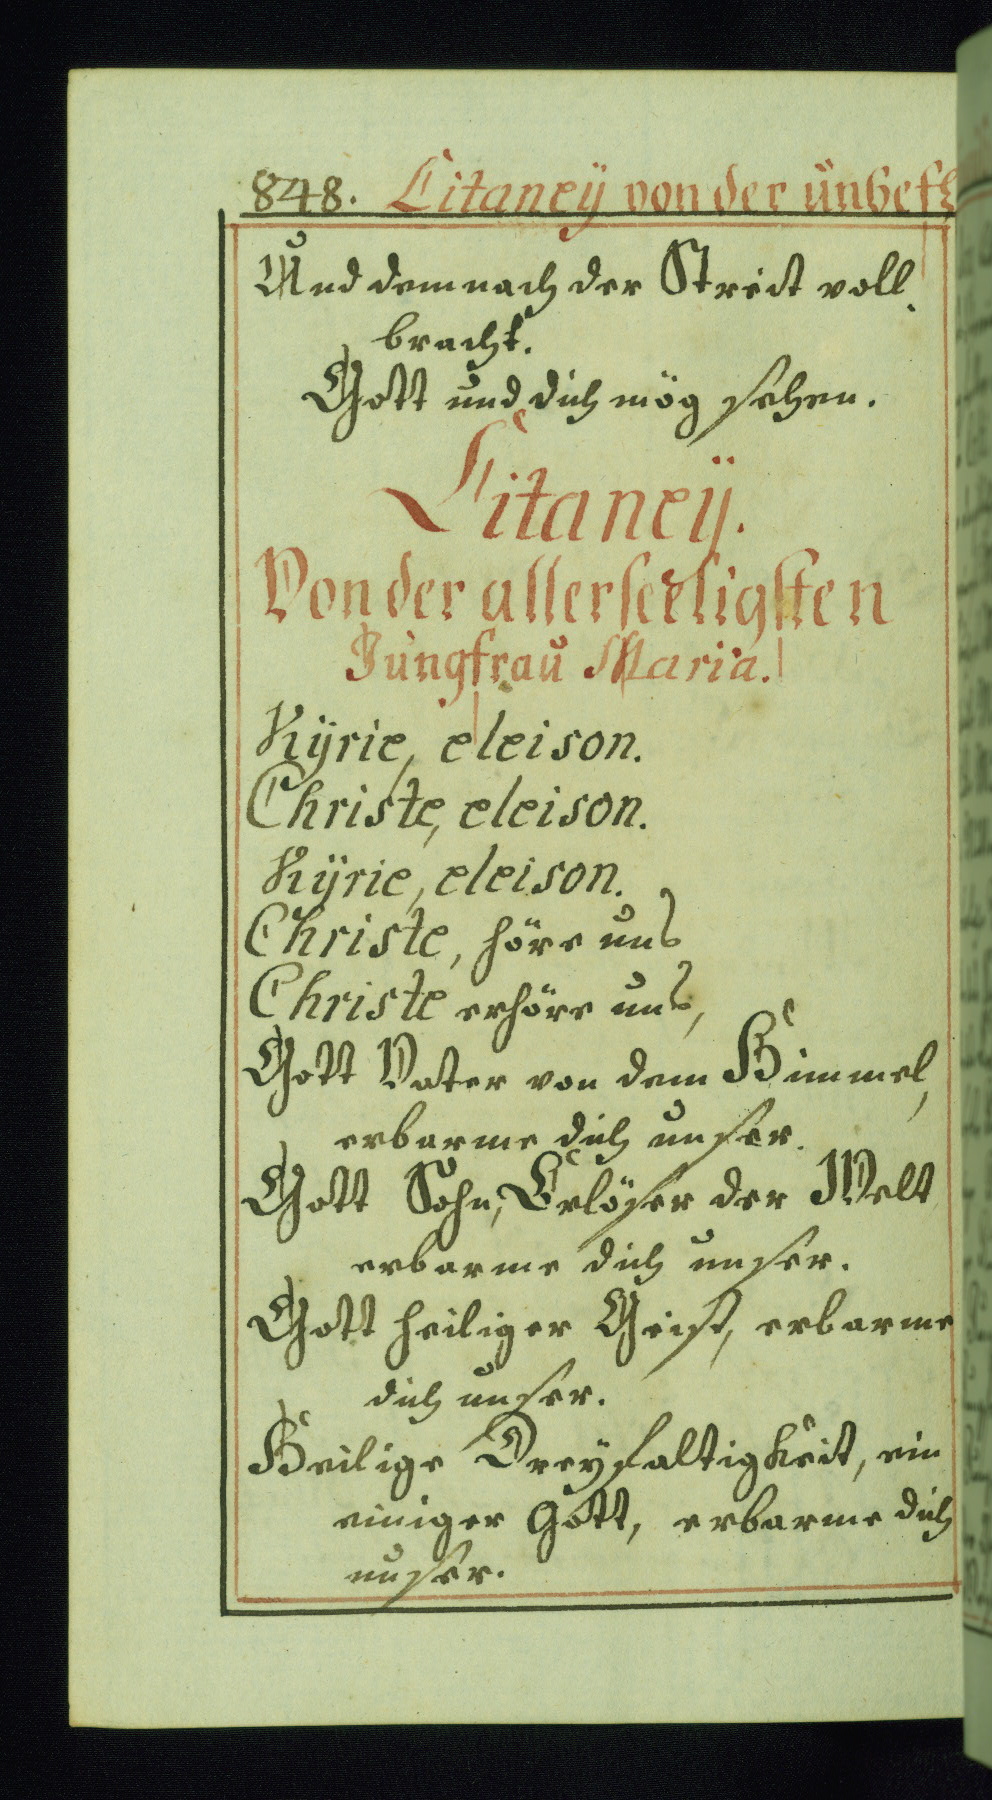 848. Litaneÿ von der ünbefl
Und demnach der Streit voll
bracht.
Gott und dich mög sehen.
Litaneÿ.
Von der allerseeligsten
Jüngfraü Maria.
Kÿrie, eleison.
Christe, eleison.
Kÿrie, eleison.
Christe, höre uns
Christe erhöre uns,
Gott Vater von dem Himmel,
erbarme dich unser.
Gott Sohn, Erlöser der Welt
erbarme dich unser.
Gott heiliger Geist, erbarme
dich unser.
Heilige Dreyfaltigkeit, ein
einiger Gott, erbarme dich
unser.